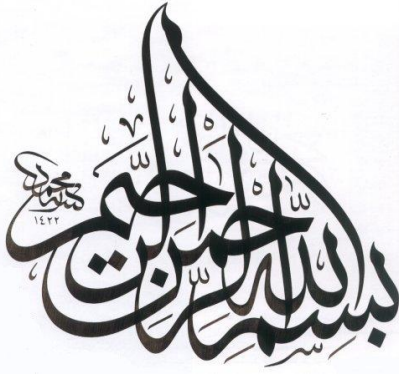 بسم الله الرحمن الرحيم
١٤٢٢